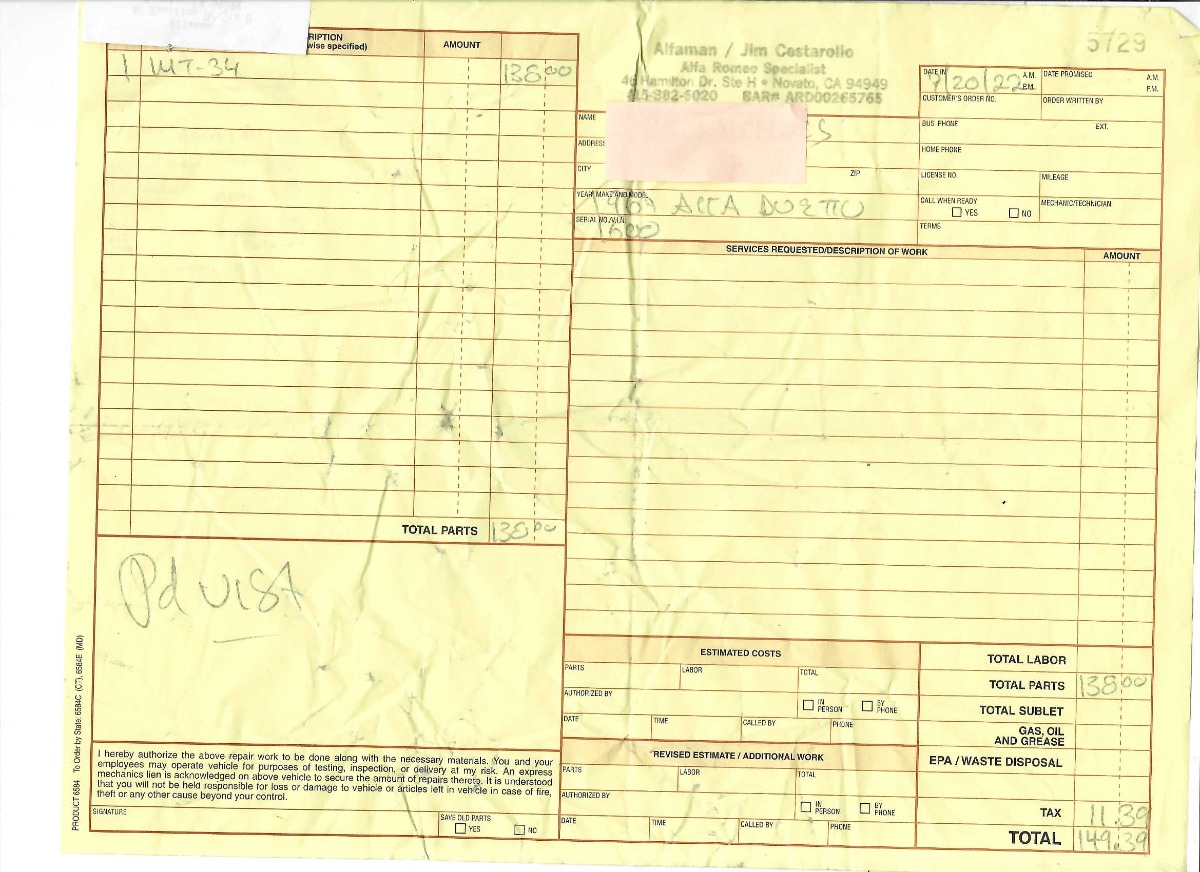 5729
RIPTION
wise specified)
AMOUNT
1 MT-34 138 00
TOTAL PARTS 138 00
Pd VISA
I hereby authorize the above repair work to be done along with the necessary materials. You and your
employees may operate vehicle for purposes of testing, inspection, or delivery at my risk. An express
mechanics lien is acknowledged on above vehicle to secure the amount of repairs thereto. It is understood
that you will not be held responsible for loss or damage to vehicle or articles left in vehicle in case of fire,
theft or any other cause beyond your control.
SIGNATURE
SAVE OLD PARTS
YES NO
PRODUCT 6584 To Order by State: 6584C (CT), 6584E (MD)
Alfaman / Jim Costarollo
Alfa Romeo Specialist
46 Hamilton Dr. Ste H • Novato, CA 94949
415-382-6020 BAR# ARD00265765
NAME
ADDRESS
CITY ZIP
YEAR, MAKE AND MODEL
1967 ALFA DUETTO
SERIAL NO./V.I.N.
1600
DATE IN 7/20/22 A.M. P.M.
DATE PROMISED A.M. P.M.
CUSTOMER'S ORDER NO. ORDER WRITTEN BY
BUS. PHONE EXT.
HOME PHONE
LICENSE NO. MILEAGE
CALL WHEN READY MECHANIC/TECHNICIAN
YES NO
TERMS
SERVICES REQUESTED/DESCRIPTION OF WORK AMOUNT
ESTIMATED COSTS
PARTS LABOR TOTAL
AUTHORIZED BY IN PERSON BY PHONE
DATE TIME CALLED BY PHONE
REVISED ESTIMATE / ADDITIONAL WORK
PARTS LABOR TOTAL
AUTHORIZED BY IN PERSON BY PHONE
DATE TIME CALLED BY PHONE
TOTAL LABOR
TOTAL PARTS 138 00
TOTAL SUBLET
GAS, OIL
AND GREASE
EPA / WASTE DISPOSAL
TAX 11.39
TOTAL 149.39